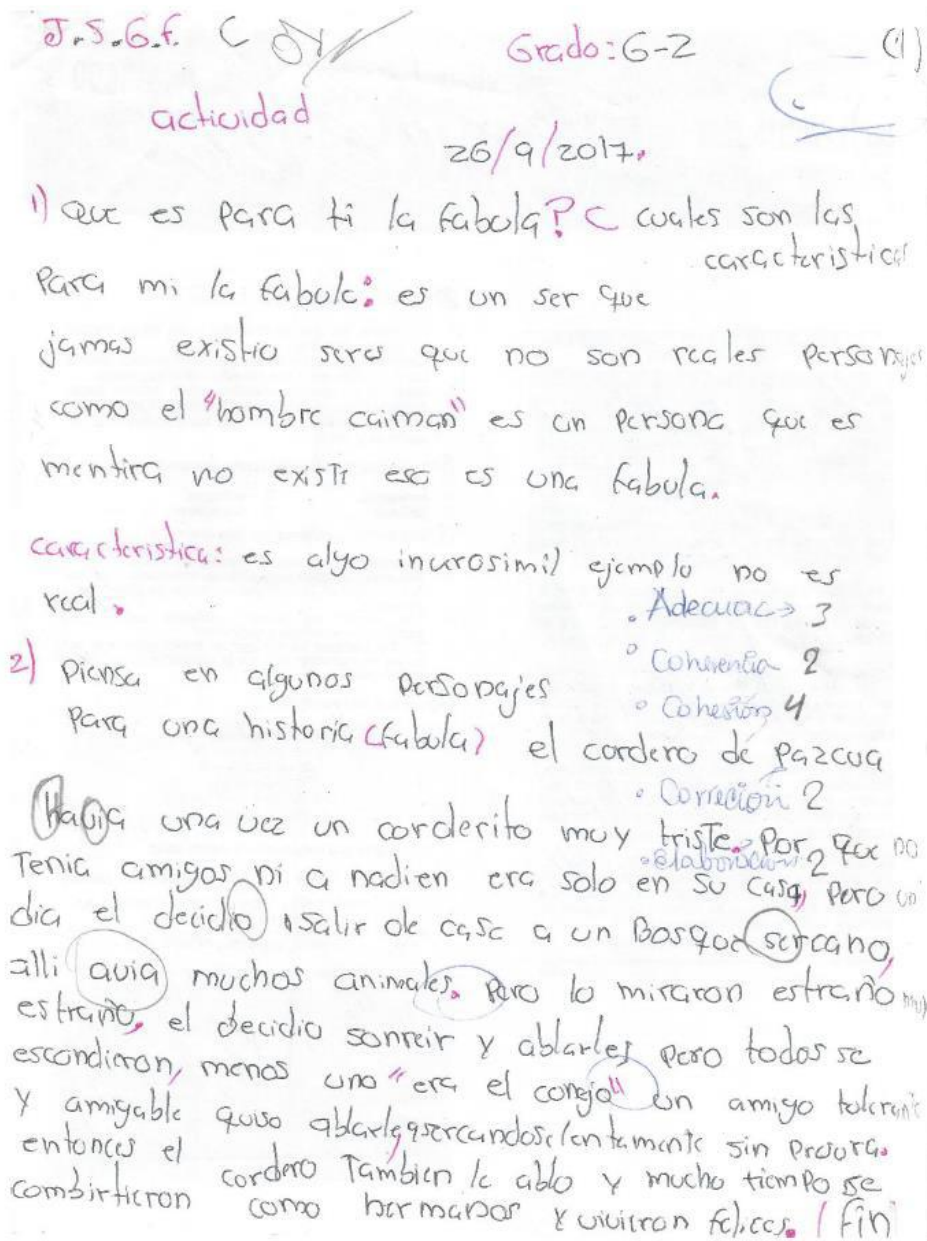 J.S.G.f. C
Grado: 6-2 (1)
actividad
26/9/2017.
1) que es para ti la fabula? C cuales son las
caracteristicas
Para mi la fabula: es un ser que
jamas existio seres que no son reales personajes
como el "hombre caiman" es un persona que es
mentira no existi eso es una fabula.
caracteristica: es algo inverosimil ejemplo no es
real.
• Adecuac→ 3
• Coherencia 2
• Cohesión 4
• Correción 2
• elaboración 2
2) Piensa en algunos personajes
Para una historia (fabula) el cordero de pazcua
Havia una vez un corderito muy triste. Por que no
Tenia amigos ni a nadien era solo en su casa, pero un
dia el decidio salir de casa a un Bosque sercano,
alli avia muchos animales. Pero lo miraron estraño muy
estraño, el decidio sonreir y ablarles pero todos se
escondieron, menos uno "era el conejo" un amigo tolerante
Y amigable quso ablarle, asercandose lentamente sin presura.
entonces el cordero Tambien le ablo y mucho tiempo se
combirtieron como hermanos y vivieron felices. / fin